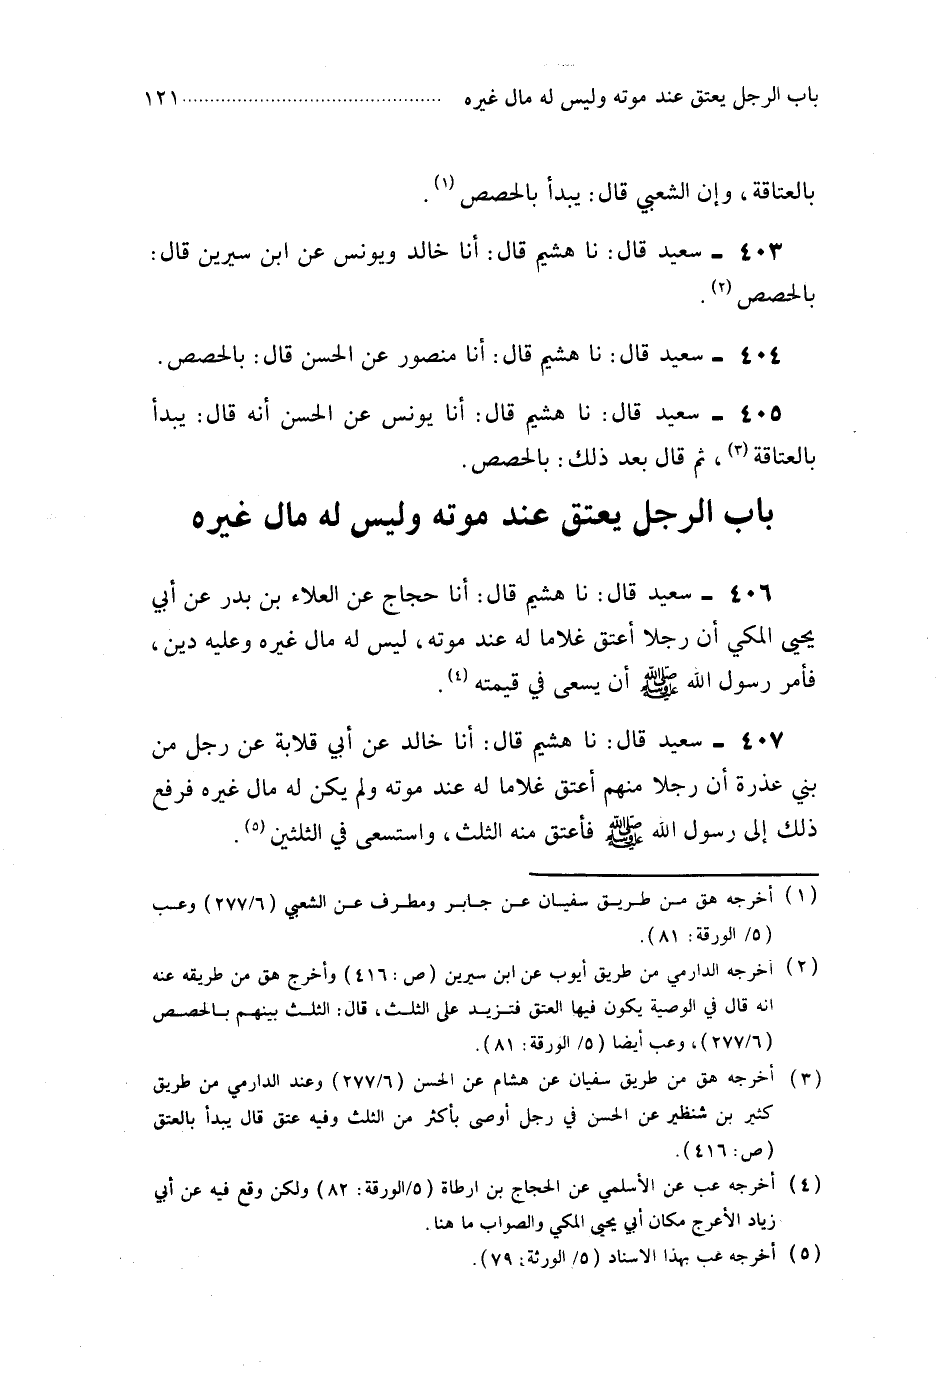 باب الرجل يعتق عند موته وليس له مال غيره ........................................... ١٢١
بالعتاقة ، وإن الشعبي قال : يبدأ بالحصص (١) .
٤٠٣ ـ سعيد قال : نا هشيم قال : أنا خالد ويونس عن ابن سيرين قال :
بالحصص (٢) .
٤٠٤ ـ سعيد قال : نا هشيم قال : أنا منصور عن الحسن قال : بالحصص .
٤٠٥ ـ سعيد قال : نا هشيم قال : أنا يونس عن الحسن أنه قال : يبدأ
بالعتاقة (٣) ، ثم قال بعد ذلك : بالحصص .
باب الرجل يعتق عند موته وليس له مال غيره
٤٠٦ ـ سعيد قال : نا هشيم قال : أنا حجاج عن العلاء بن بدر عن أبي
يحيى المكي أن رجلا أعتق غلاما له عند موته ، ليس له مال غيره وعليه دين ،
فأمر رسول الله ﷺ أن يسعى في قيمته (٤) .
٤٠٧ ـ سعيد قال : نا هشيم قال : أنا خالد عن أبي قلابة عن رجل من
بني عذرة أن رجلا منهم أعتق غلاما له عند موته ولم يكن له مال غيره فرفع
ذلك إلى رسول الله ﷺ فأعتق منه الثلث ، واستسعى في الثلثين (٥) .
(١) أخرجه هق من طريق سفيان عن جابر ومطرف عن الشعبي (٢٧٧/٦) وعب
(٥/ الورقة : ٨١) .
(٢) أخرجه الدارمي من طريق أيوب عن ابن سيرين (ص : ٤١٦) وأخرج هق من طريقه عنه
انه قال في الوصية يكون فيها العتق فتزيد على الثلث ، قال : الثلث بينهم بالحصص
(٢٧٧/٦) ، وعب أيضا (٥/ الورقة : ٨١) .
(٣) أخرجه هق من طريق سفيان عن هشام عن الحسن (٢٧٧/٦) وعند الدارمي من طريق
كثير بن شنظير عن الحسن في رجل أوصى بأكثر من الثلث وفيه عتق قال يبدأ بالعتق
(ص : ٤١٦) .
(٤) أخرجه عب عن الأسلمي عن الحجاج بن ارطاة (٥/الورقة : ٨٢) ولكن وقع فيه عن أبي
زياد الأعرج مكان أبي يحيى المكي والصواب ما هنا .
(٥) أخرجه عب بهذا الاسناد (٥/ الورثة : ٧٩) .